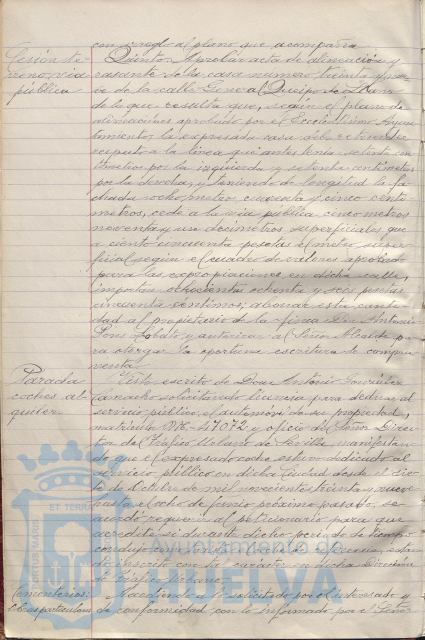 con arreglo al plano que acompaña
Sesión te-
rreno vía
pública
Quinto. Aprobar acta de alineación y
rasante de la casa número treinta y nue-
ve de la calle General Queipo de Llano
de la que resulta que, según el plano de
alineaciones aprobado por el Excelentísimo Ayun-
tamiento, la expresada casa debe retirarse
respecto a la línea que antes tenía setenta cen-
tímetros por la izquierda y setenta centímetros
por la derecha, y teniendo de longitud la fa-
chada ocho metros cuarenta y cinco centí-
metros, cede a la vía pública cinco metros
noventa y un decímetros superficiales que
a ciento cincuenta pesetas el metro super-
ficial según el cuadro de valores aprobado
para las expropiaciones en dicha calle,
importan ochocientas ochenta y seis pesetas
cincuenta céntimos; abonar esta canti-
dad al propietario de la finca Don Antonio
Pons Lobato y autorizar al Señor Alcalde pa-
ra otorgar la oportuna escritura de compra
venta.
Parada
coches al-
quiler.
Visto escrito de Don Antonio González
Camacho solicitando licencia para dedicar al
servicio público el automóvil de su propiedad,
matrícula M-47072 y oficio del Señor Direc-
tor de Tráfico Urbano de Sevilla manifestan-
do que el expresado coche estuvo dedicado al
servicio público en dicha Ciudad desde el
de Octubre de mil novecientos treinta y nueve
hasta el ocho de Junio próximo pasado, se
acuerdo requerir al peticionario para que
acredite si durante dicho período de tiempo
condujo
inscrito con tal carácter en dicha Dirección
de Tráfico Urbano.
Cementerios:
particulares
Accediendo a lo solicitado por el interesado y
de conformidad con lo informado por el Señor
Ayuntamiento de
HUELVA
PORTUS MARIS
ET TERRAE